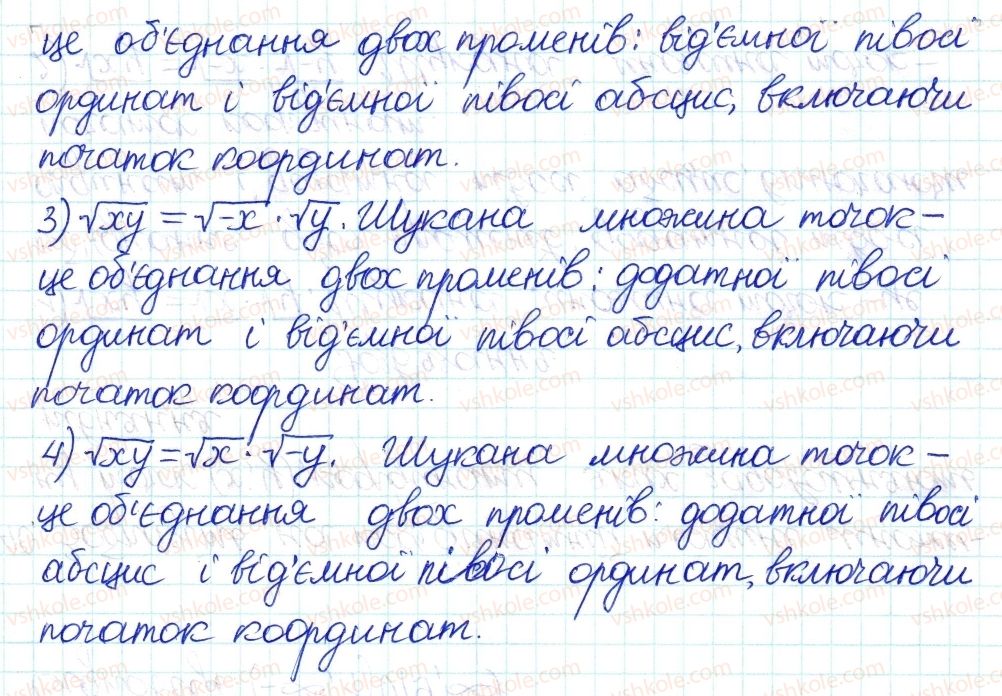 це об'єднання двох променів: від'ємної півосі
ординат і від'ємної півосі абсцис, включаючи
початок координат.
3) √xy = √-x · √y. Шукана множина точок –
це об'єднання двох променів: додатної півосі
ординат і від'ємної півосі абсцис, включаючи
початок координат.
4) √xy = √x · √-y. Шукана множина точок –
це об'єднання двох променів: додатної півосі
абсцис і від'ємної півосі ординат, включаючи
початок координат.